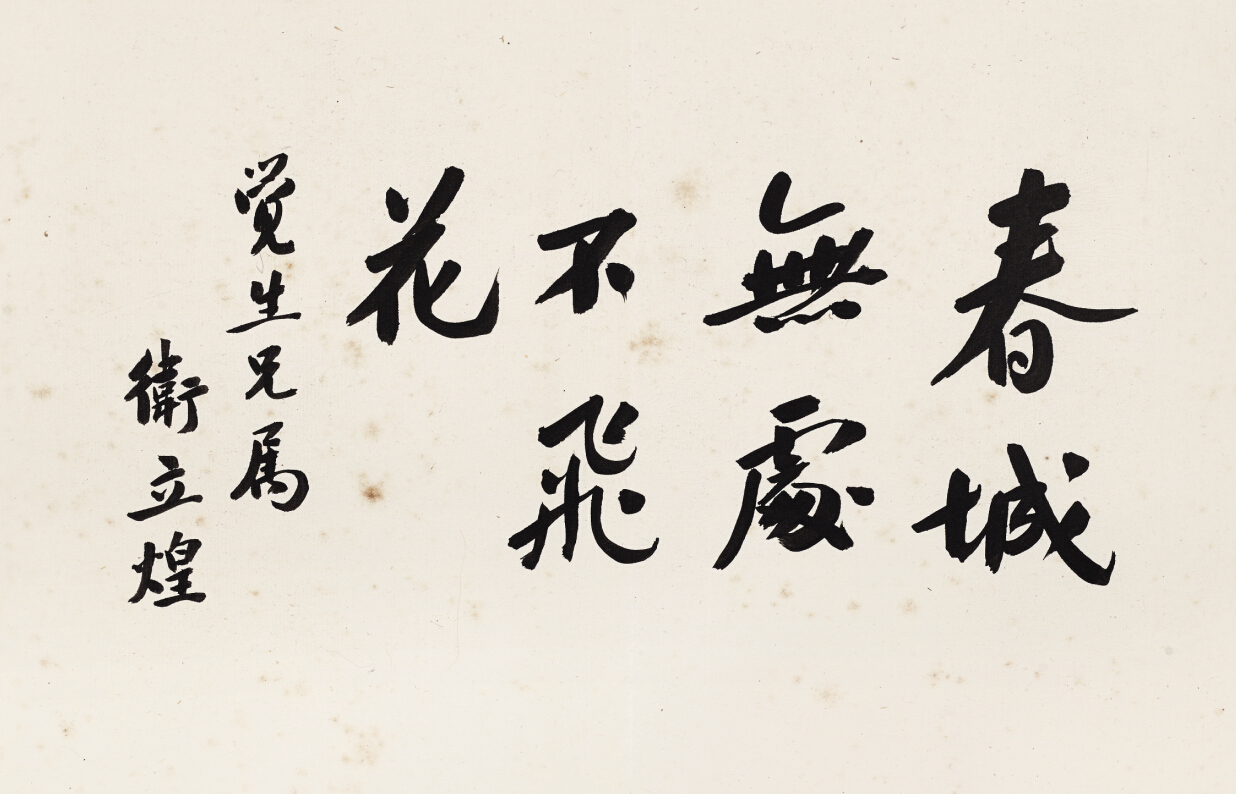 春城
無處
不飛
花
覺生兄属
衛立煌